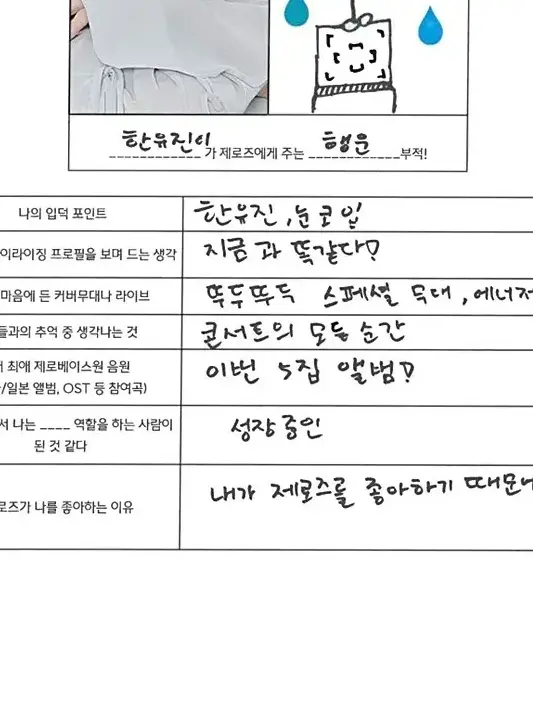 한유진이 가 제로즈에게 주는 행운 부적!
나의 입덕 포인트 한유진, 눈코입
이라이징 프로필을 보며 드는 생각 지금과 똑같다?
마음에 든 커버무대나 라이브 뚜두뚜두 스페셜 무대, 에너지
들과의 추억 중 생각나는 것 콘서트의 모든 순간
최애 제로베이스원 음원 이번 5집 앨범?
/일본 앨범, OST 등 참여곡)
서 나는 ____ 역할을 하는 사람이 성장중인
된 것 같다
로즈가 나를 좋아하는 이유 내가 제로즈를 좋아하기 때문에